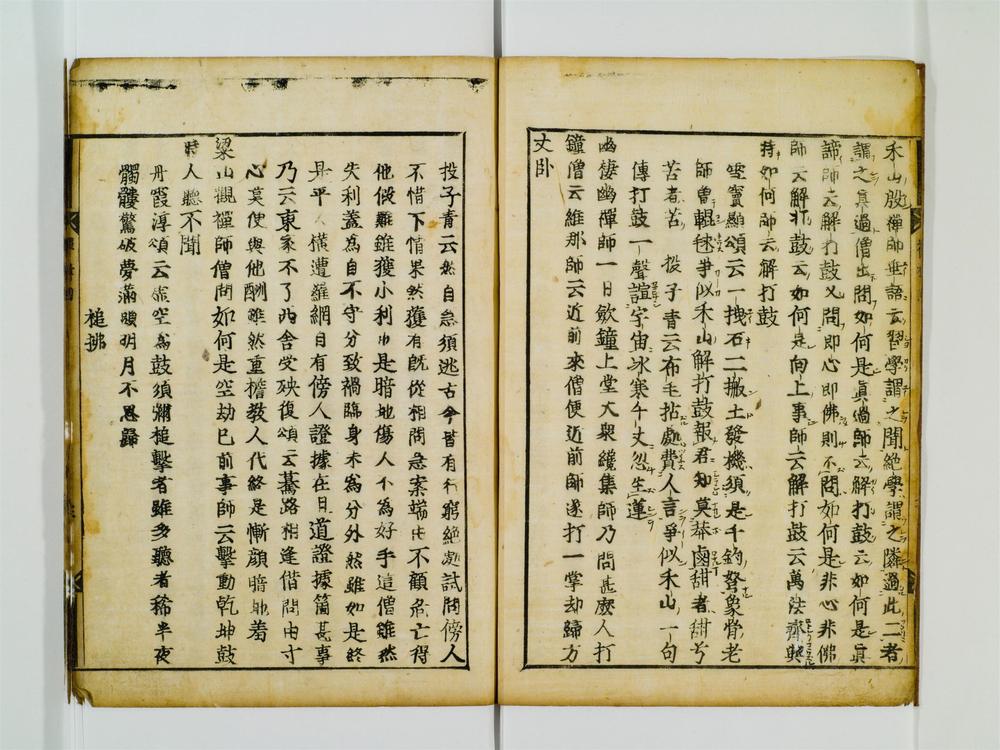 禾山殷禪師垂語云習學謂之聞絕學謂之隣過此二者
謂之眞過僧出問如何是眞過師云解打鼓云如何是眞
諦師云解打鼓又問即心即佛則不問如何是非心非佛
師云解打鼓云如何是向上事師云解打鼓云萬法齊興
時如何師云解打鼓
雪竇顯頌云一拽石二搬土發機須是千鈞弩象骨老
師曽輥毬爭似禾山解打鼓報君知莫莽鹵甜者甜兮
苦者苦 投子青云布毛拈處費人言爭似禾山一句
傳打鼓一聲諠宇宙冰寒千丈忽生蓮
幽棲幽禪師一日敲鐘上堂大衆纔集師乃問甚麽人打
鐘僧云維那師云近前來僧便近前師遂打一掌却歸方
丈卧
投子青云然自急須逃古今皆有行窮絕處試問傍人
不惜下情果然獲有旣從相問急案端由不顧危亡得
他假雞雖獲小利由是暗地傷人个為好手這僧雖然
失利蓋為自不守分致禍臨身未為分外然雖如是終
是平人橫遭羅網日有傍人證據在且道證據箇甚事
乃云東家不了西舍受殃復頌云驀路相逢借問由寸
心莫使與他酬雖然重擔教人代終是慚顔暗地羞
梁山觀禪師僧問如何是空劫已前事師云擊動乾坤鼓
時人聽不聞
丹霞淳頌云虛空為鼓須彌槌擊者雖多聽者稀半夜
髑髏驚破夢滿頭明月不思歸
槌拂